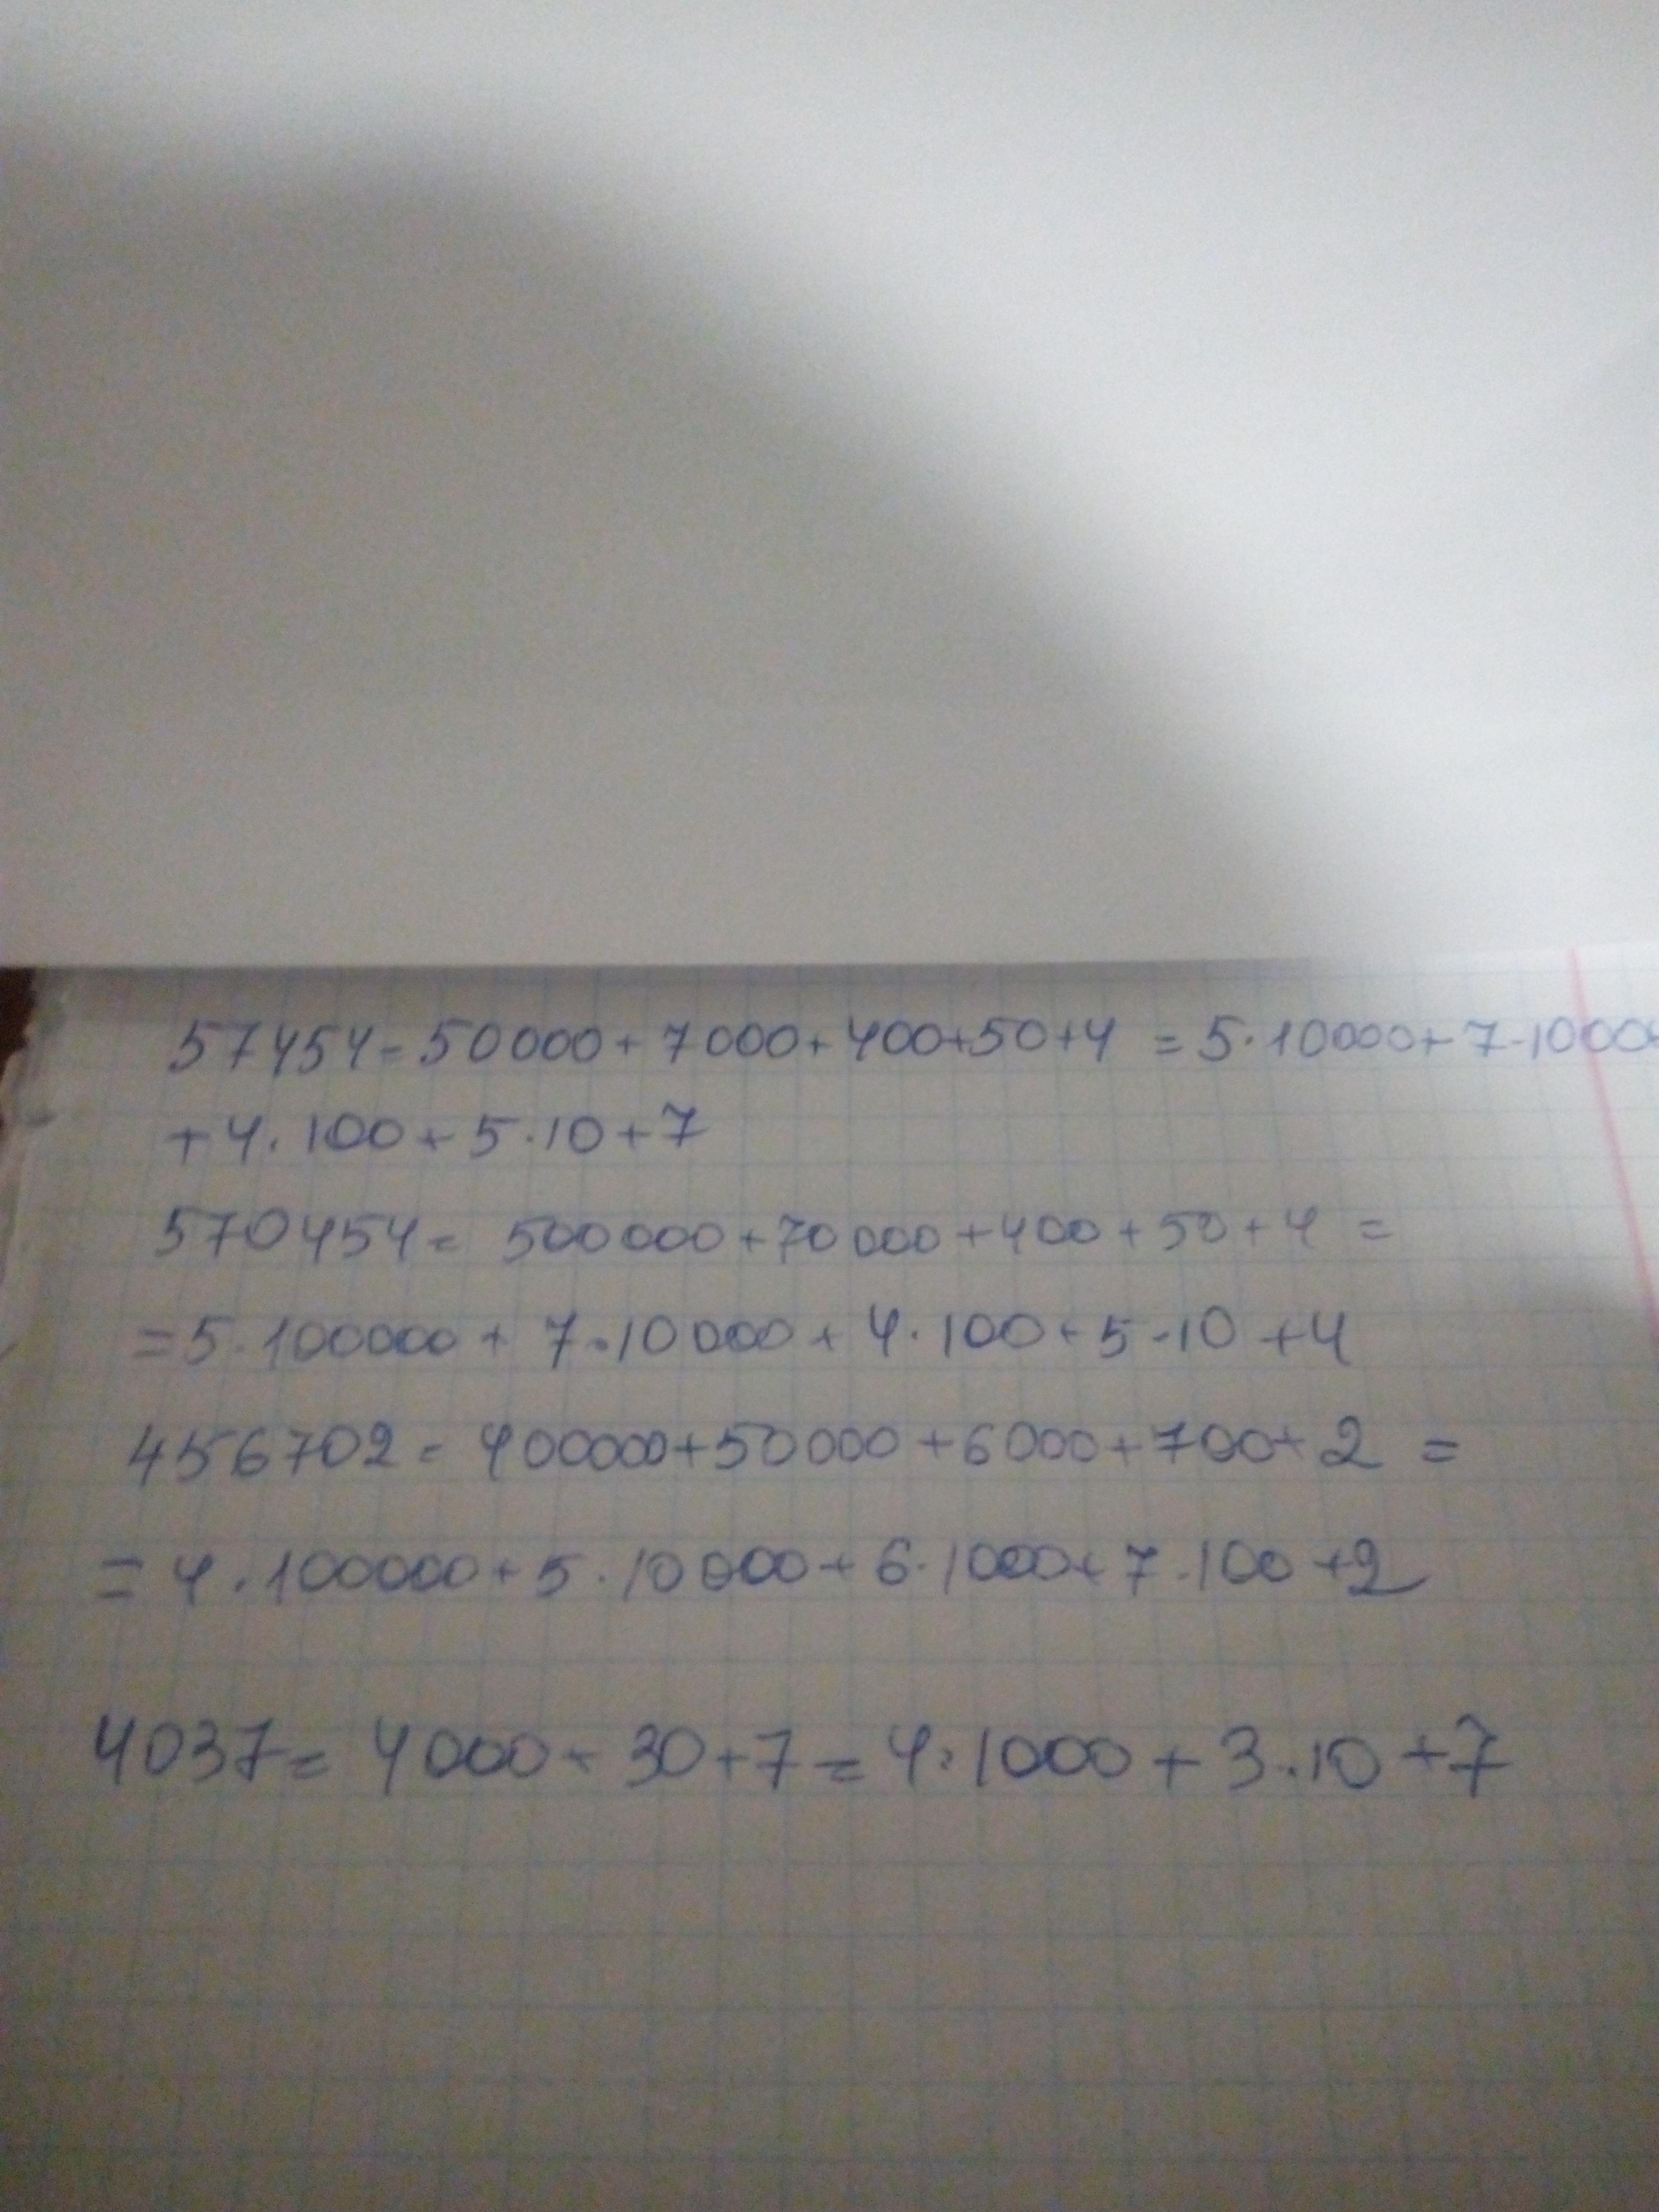 57454=50000+7000+400+50+4 =5·10000+7·1000+
+4·100+5·10+7
570454= 500000+70000+400+50+4 =
=5·100000+7·10000+4·100+5·10+4
456702=400000+50000+6000+700+2 =
=4·100000+5·10000+6·1000+7·100+2
4037=4000+30+7=4·1000+3·10+7